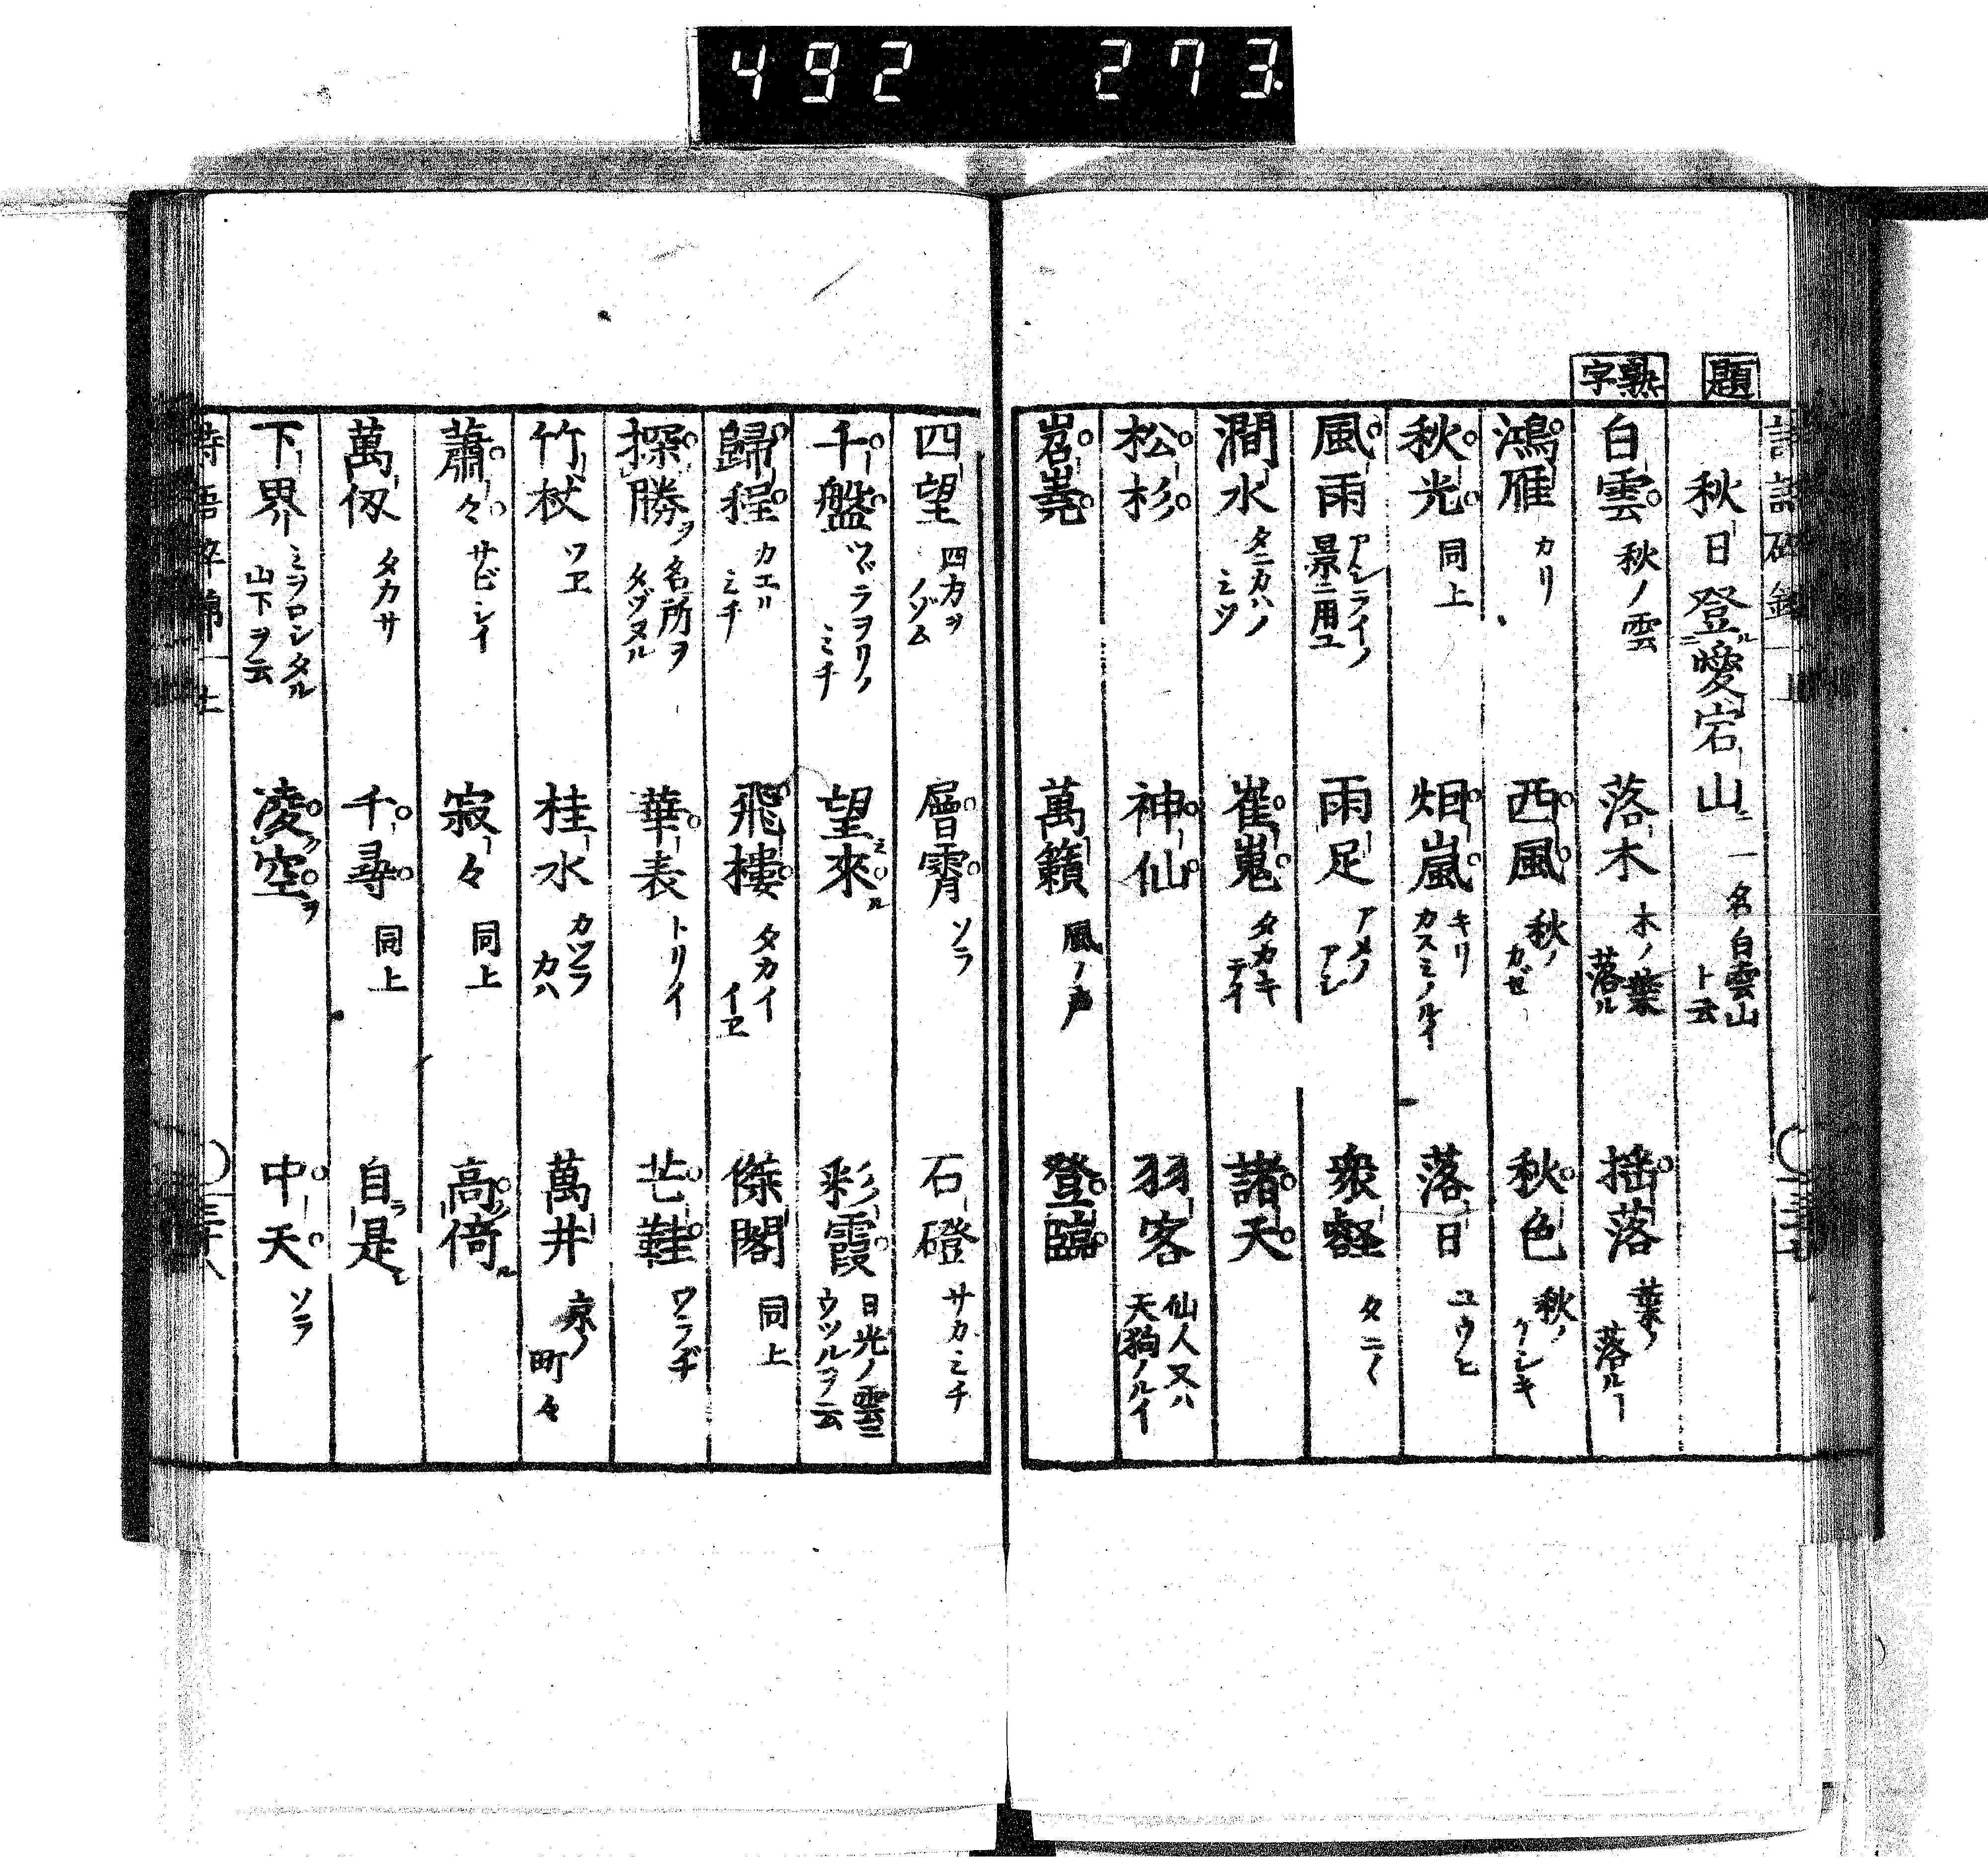 492 273.
題
熟字
秋日登ル二愛宕山ニ一 名白雲山ト云
白雲 秋ノ雲 落木 木ノ葉落ル 揺落 葉ノ落ルヿ
鴻雁 カリ 西風 秋ノカゼ 秋色 秋ノケシキ
秋光 同上 烟嵐 キリカスミノルイ 落日 ユウヒ
風雨 アシライノ景ニ用ユ 雨足 アメノアシ 衆壑 タニ〱
澗水 タニカハノミヅ 崔嵬 タカキテイ 諸天
松杉 神仙 羽客 仙人又ハ天狗ノルイ
岧嶤 萬籟 風ノ声 登臨
四望 四方ヲノゾム 層霄 ソラ 石磴 サカミチ
千盤 ツヾラヲリノミチ 望來レハ 彩霞 日光ノ雲ニウツルヲ云
歸程 カエルミチ 飛樓 タカイイヱ 傑閣 同上
探勝ヲ 名所ヲタヅヌル 華表 トリイ 芒鞋 ワラヂ
竹杖 ツヱ 桂水 カツラカハ 萬井 京ノ町々
蕭々 サビシイ 寂々 同上 高倚ル
萬仭 タカサ 千尋 同上 自是
下界 ミヲロシタル山下ヲ云 凌空ヲ 中天 ソラ